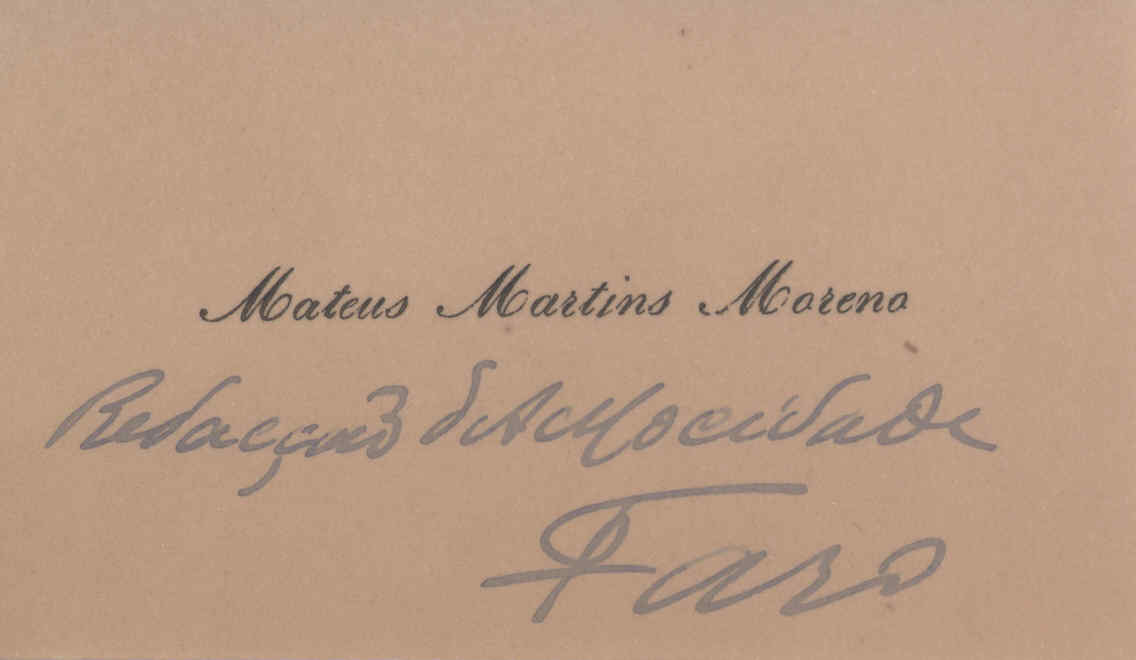 Mateus Martins Moreno
Redacção d'A Mocidade
Faro